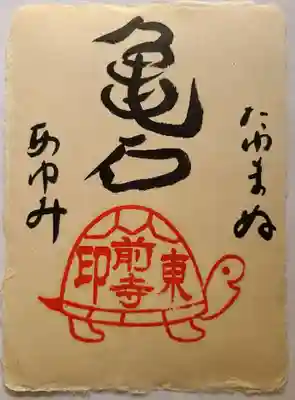 たゆまぬ
亀石
あゆみ
東前寺印